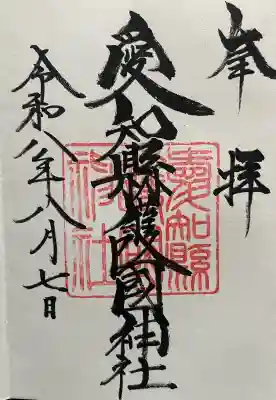 奉拝
愛知縣護國神社
愛知縣護國神社
令和八年八月七日